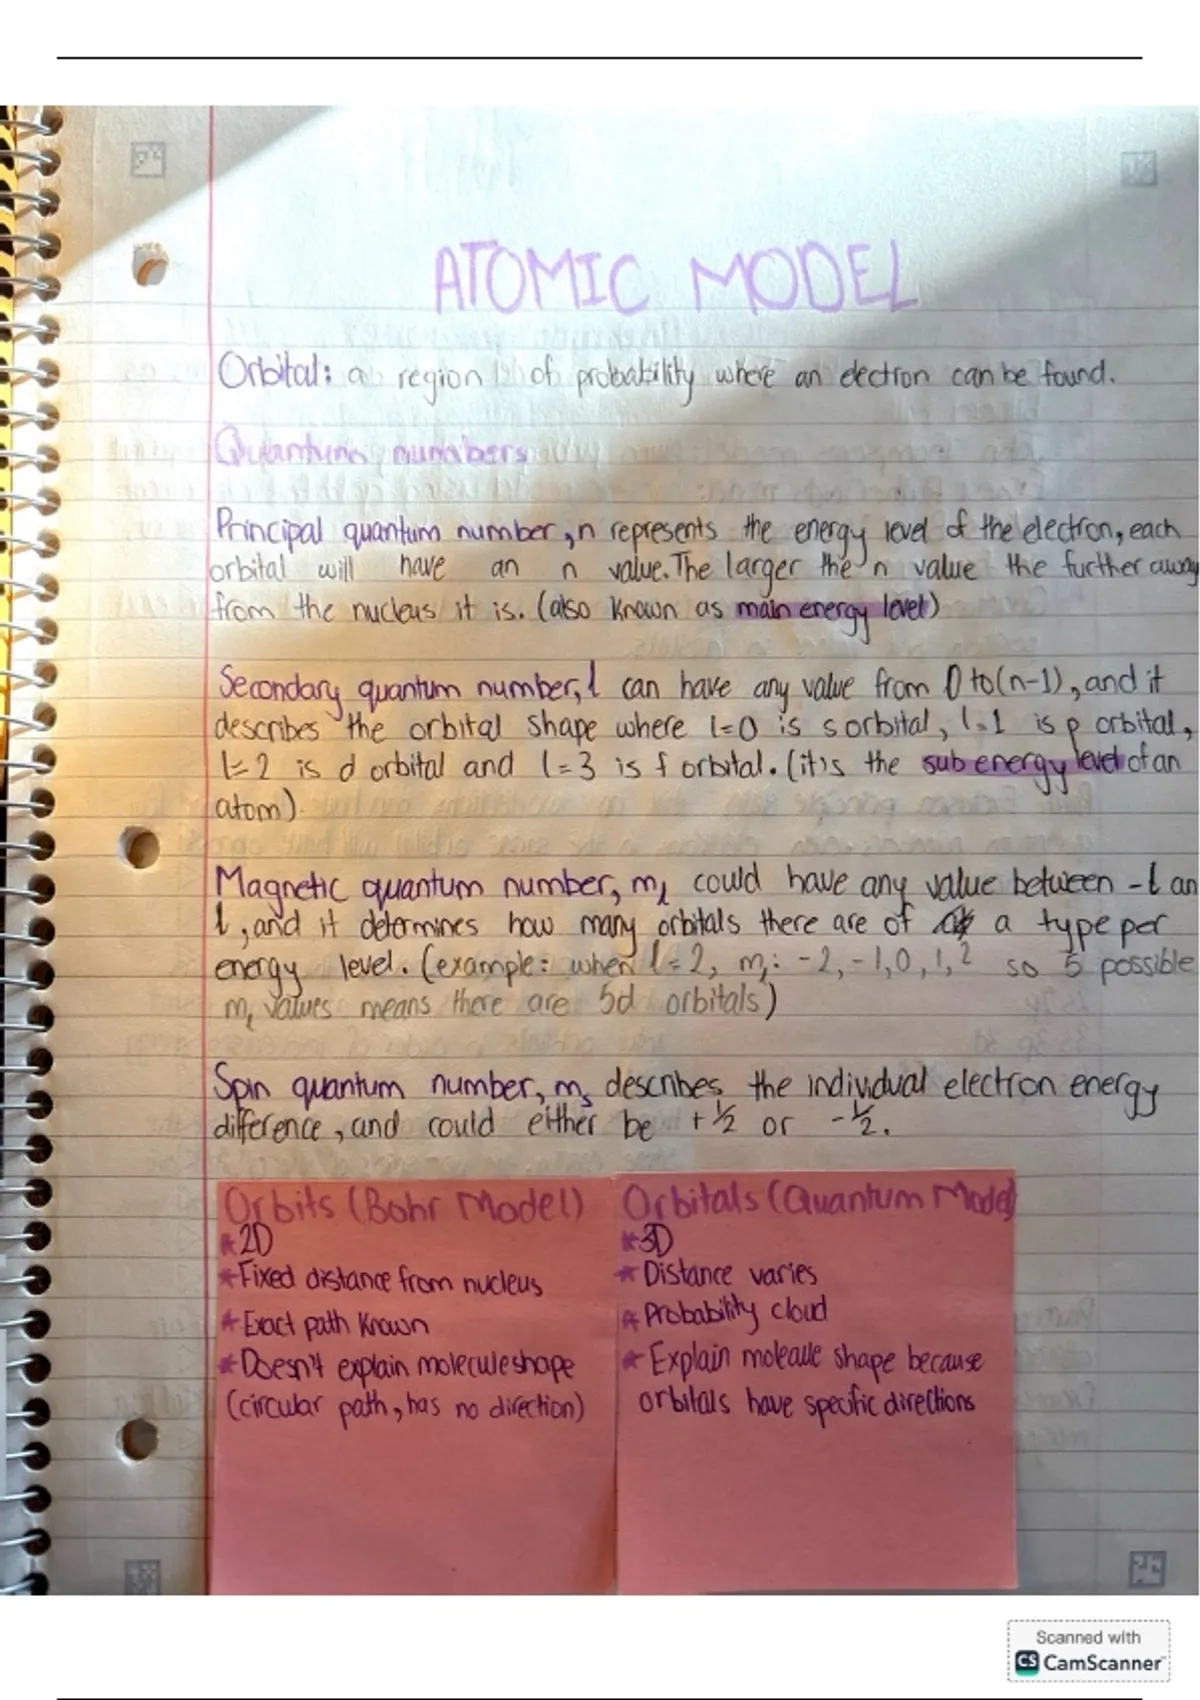 ATOMIC MODEL
Orbital: a region of probability where an electron can be found.
Quantum numbers
Principal quantum number, n represents the energy level of the electron, each
orbital will have an n value. The larger the n value the further away
from the nucleus it is. (also known as main energy level)
Secondary quantum number, l can have any value from 0 to (n-1), and it
describes the orbital shape where l=0 is s orbital, l=1 is p orbital,
l=2 is d orbital and l=3 is f orbital. (it's the sub energy level of an
atom)
Magnetic quantum number, ml could have any value between -l an
l, and it determines how many orbitals there are of a type per
energy level. (example: when l=2, ml: -2,-1,0,1,2 so 5 possible
ml values means there are 5d orbitals)
Spin quantum number, ms describes the individual electron energy
difference, and could either be +1/2 or -1/2.
Orbits (Bohr Model)
*2D
*Fixed distance from nucleus
*Exact path known
*Doesn't explain molecule shape
(circular path, has no direction)
Orbitals (Quantum Model)
*3D
*Distance varies
*Probability cloud
*Explain molecule shape because
orbitals have specific directions
Scanned with
CS CamScanner